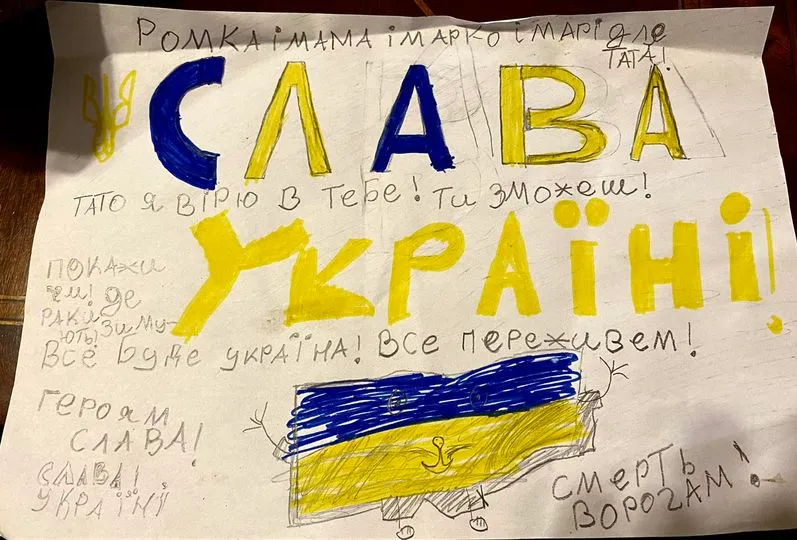 РОМКА І МАМА І МАРКО І МАРІ для
ТАТА!
СЛАВА
ТАТО Я ВІРЮ В ТЕБЕ! ТИ ЗМОЖЕШ!
УКРАЇНІ!
ПОКАЖИ
їм! ДЕ
РАКИ ЗИМУ-
ЮТЬ!
ВСЕ БУДЕ УКРАЇНА! ВСЕ ПЕРЕЖИВЕМ!
ГЕРОЯМ
СЛАВА!
СЛАВА!
УКРАЇНІ
СМЕРТЬ
ВОРОГАМ!